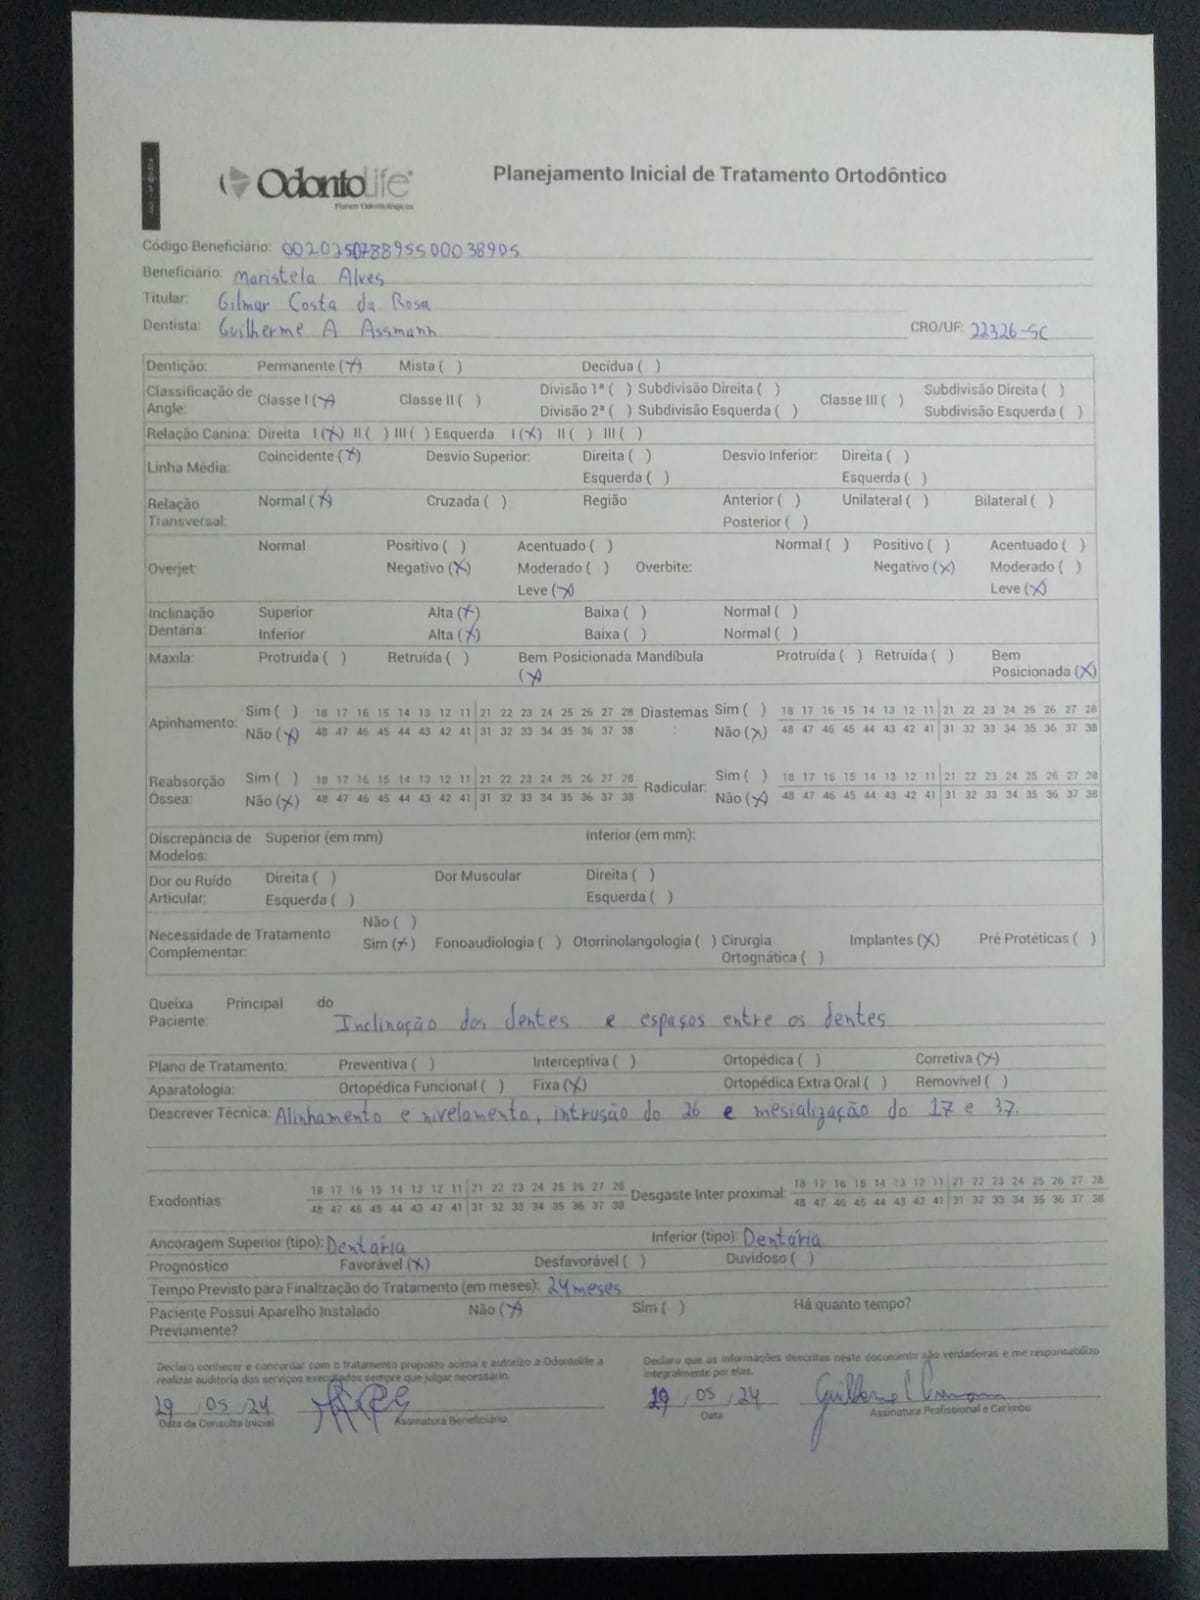 OdontoLife
Planos Odontológicos
Planejamento Inicial de Tratamento Ortodôntico
Código Beneficiário: 002025078895500038905
Beneficiário: Maristela Alves
Titular: Gilmar Costa da Rosa
Dentista: Guilherme A Assmann CRO/UF: 22326-SC
Dentição: Permanente (X) Mista ( ) Decídua ( )
Classificação de Angle: Classe I (X) Classe II ( ) Divisão 1ª ( ) Subdivisão Direita ( ) Classe III ( ) Subdivisão Direita ( )
Divisão 2ª ( ) Subdivisão Esquerda ( ) Subdivisão Esquerda ( )
Relação Canina: Direita I (X) II ( ) III ( ) Esquerda I (X) II ( ) III ( )
Linha Média: Coincidente (X) Desvio Superior: Direita ( ) Desvio Inferior: Direita ( )
Esquerda ( ) Esquerda ( )
Relação Transversal: Normal (X) Cruzada ( ) Região Anterior ( ) Unilateral ( ) Bilateral ( )
Posterior ( )
Overjet: Normal Positivo ( ) Acentuado ( ) Overbite: Normal ( ) Positivo ( ) Acentuado ( )
Negativo (X) Moderado ( ) Negativo (X) Moderado ( )
Leve (X) Leve (X)
Inclinação Dentária: Superior Alta (X) Baixa ( ) Normal ( )
Inferior Alta (X) Baixa ( ) Normal ( )
Maxila: Protruída ( ) Retruída ( ) Bem Posicionada (X) Mandíbula Protruída ( ) Retruída ( ) Bem Posicionada (X)
Apinhamento: Sim ( ) 18 17 16 15 14 13 12 11 21 22 23 24 25 26 27 28 Diastemas: Sim ( ) 18 17 16 15 14 13 12 11 21 22 23 24 25 26 27 28
Não (X) 48 47 46 45 44 43 42 41 31 32 33 34 35 36 37 38 Não (X) 48 47 46 45 44 43 42 41 31 32 33 34 35 36 37 38
Reabsorção Óssea: Sim ( ) 18 17 16 15 14 13 12 11 21 22 23 24 25 26 27 28 Radicular: Sim ( ) 18 17 16 15 14 13 12 11 21 22 23 24 25 26 27 28
Não (X) 48 47 46 45 44 43 42 41 31 32 33 34 35 36 37 38 Não (X) 48 47 46 45 44 43 42 41 31 32 33 34 35 36 37 38
Discrepância de Modelos: Superior (em mm) Inferior (em mm):
Dor ou Ruído Articular: Direita ( ) Dor Muscular Direita ( )
Esquerda ( ) Esquerda ( )
Necessidade de Tratamento Complementar: Não ( )
Sim (X) Fonoaudiologia ( ) Otorrinolangologia ( ) Cirurgia Ortognática ( ) Implantes (X) Pré Protéticas ( )
Queixa Principal do Paciente: Inclinação dos dentes e espaços entre os dentes
Plano de Tratamento: Preventiva ( ) Interceptiva ( ) Ortopédica ( ) Corretiva (X)
Aparatologia: Ortopédica Funcional ( ) Fixa (X) Ortopédica Extra Oral ( ) Removível ( )
Descrever Técnica: Alinhamento e nivelamento, intrusão do 26 e mesialização do 17 e 37.
Exodontias 18 17 16 15 14 13 12 11 21 22 23 24 25 26 27 28 Desgaste Inter proximal: 18 17 16 15 14 13 12 11 21 22 23 24 25 26 27 28
48 47 46 45 44 43 42 41 31 32 33 34 35 36 37 38 48 47 46 45 44 43 42 41 31 32 33 34 35 36 37 38
Ancoragem Superior (tipo): Dentária Inferior (tipo): Dentária
Prognóstico Favorável (X) Desfavorável ( ) Duvidoso ( )
Tempo Previsto para Finalização do Tratamento (em meses): 24 meses
Paciente Possui Aparelho Instalado Previamente? Não (X) Sim ( ) Há quanto tempo?
Declaro conhecer e concordar com o tratamento proposto acima e autorizo a Odontolife a
realizar auditoria dos serviços executados sempre que julgar necessário.
Declaro que as informações descritas neste documento são verdadeiras e me responsabilizo
integralmente por elas.
29 , 05 , 24
Data da Consulta Inicial Assinatura Beneficiário
29 , 05 , 24
Data Assinatura Profissional e Carimbo